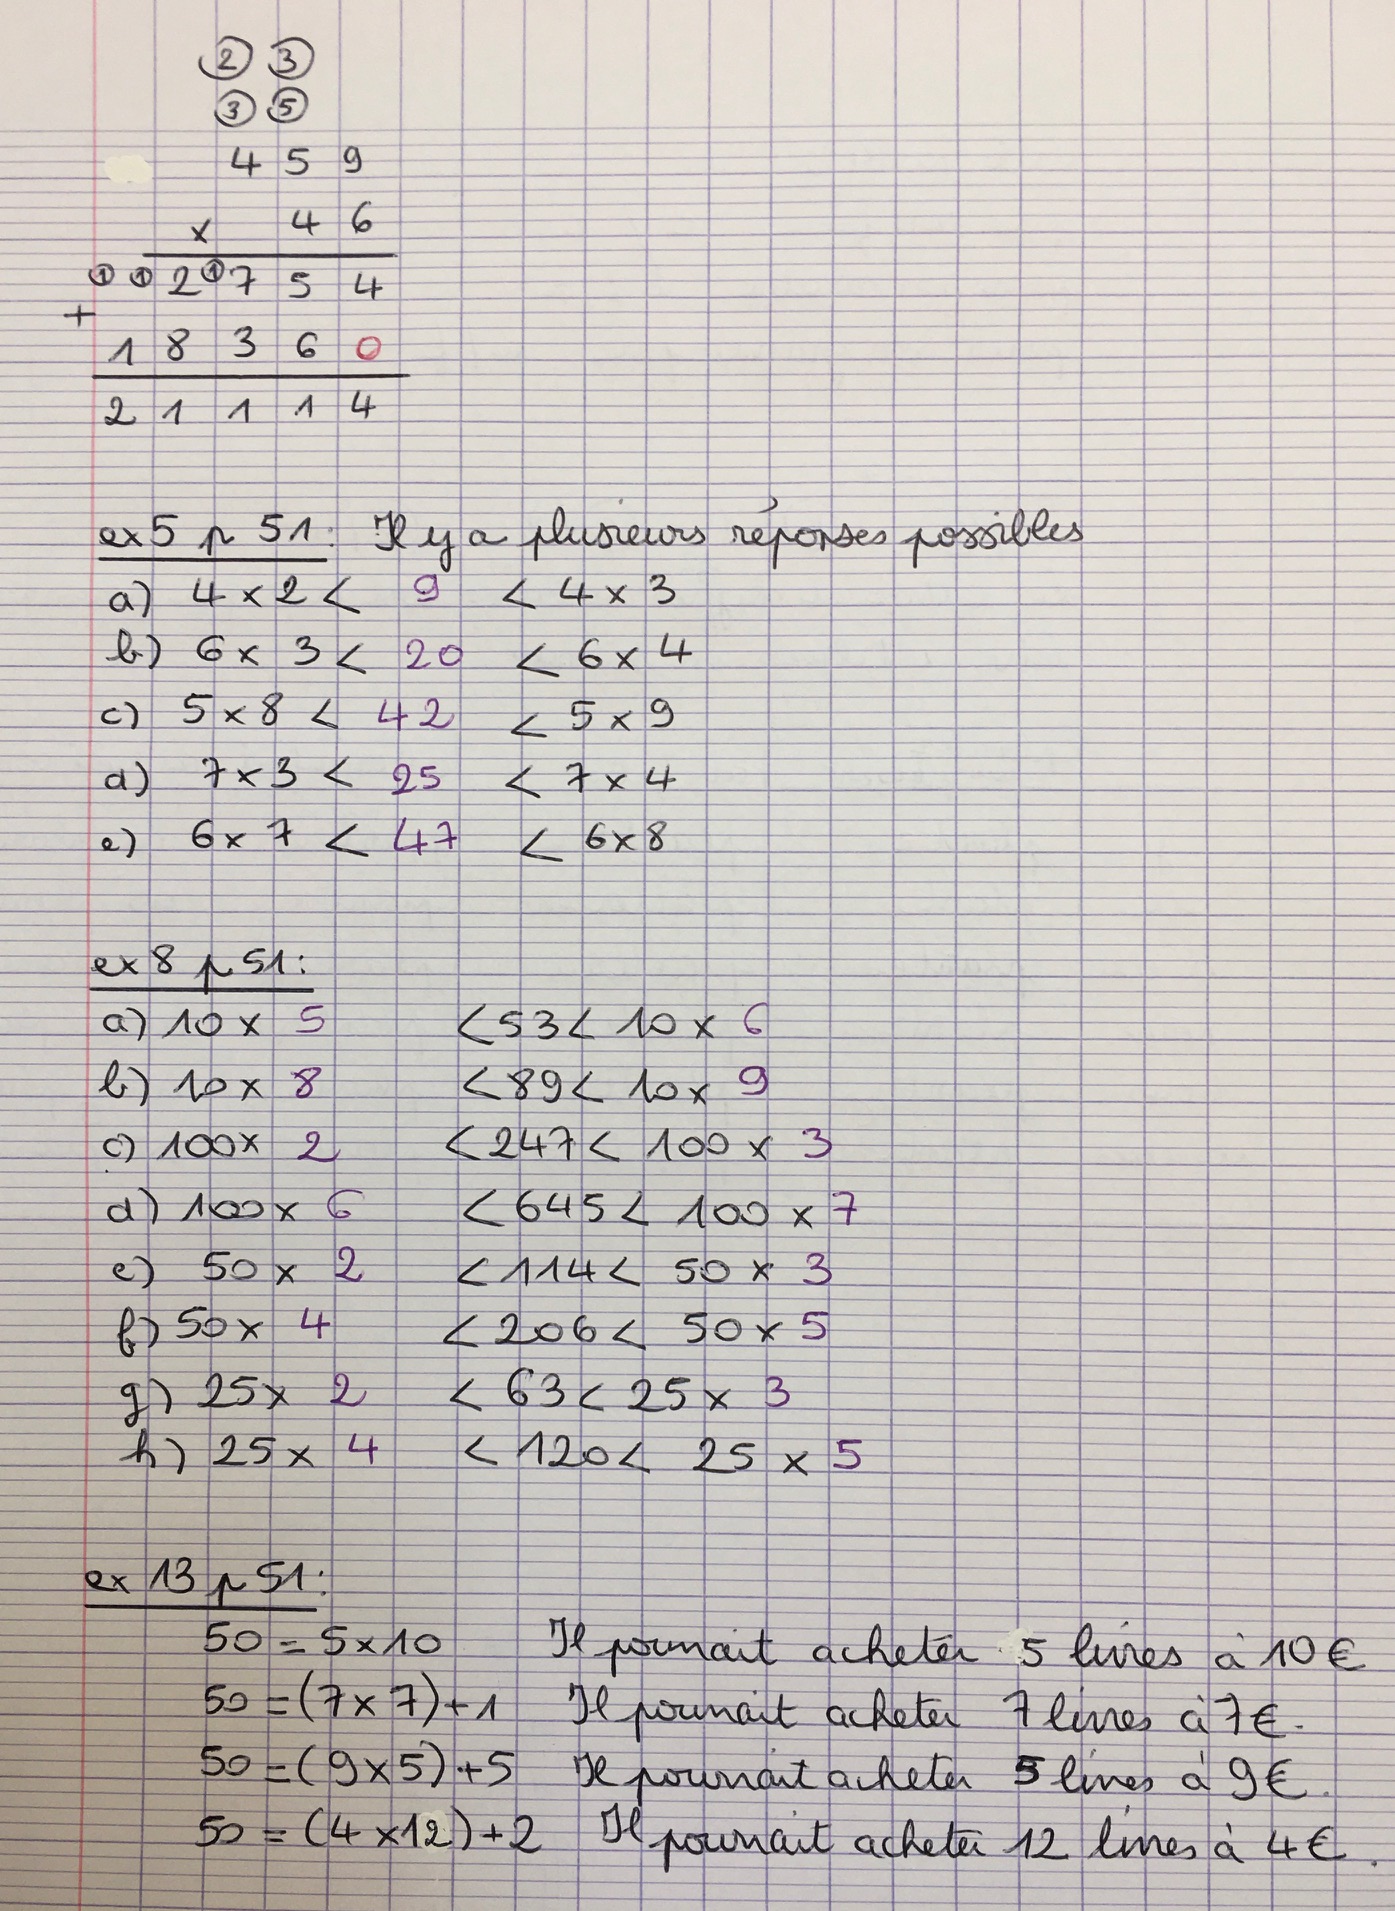 ② ③
③ ⑤
4 5 9
x 4 6
① ① 2 ① 7 5 4
+
1 8 3 6 0
2 1 1 1 4
ex 5 p 51 : Il y a plusieurs réponses possibles
a) 4 x 2 < 9 < 4 x 3
b) 6 x 3 < 20 < 6 x 4
c) 5 x 8 < 42 < 5 x 9
d) 7 x 3 < 25 < 7 x 4
e) 6 x 7 < 47 < 6 x 8
ex 8 p 51 :
a) 10 x 5 < 53 < 10 x 6
b) 10 x 8 < 89 < 10 x 9
c) 100 x 2 < 247 < 100 x 3
d) 100 x 6 < 645 < 100 x 7
e) 50 x 2 < 114 < 50 x 3
f) 50 x 4 < 206 < 50 x 5
g) 25 x 2 < 63 < 25 x 3
h) 25 x 4 < 120 < 25 x 5
ex 13 p 51 :
50 = 5 x 10 Il pourrait acheter 5 livres à 10 €
50 = (7 x 7) + 1 Il pourrait acheter 7 livres à 7 €.
50 = (9 x 5) + 5 Il pourrait acheter 5 livres à 9 €.
50 = (4 x 12) + 2 Il pourrait acheter 12 livres à 4 €.